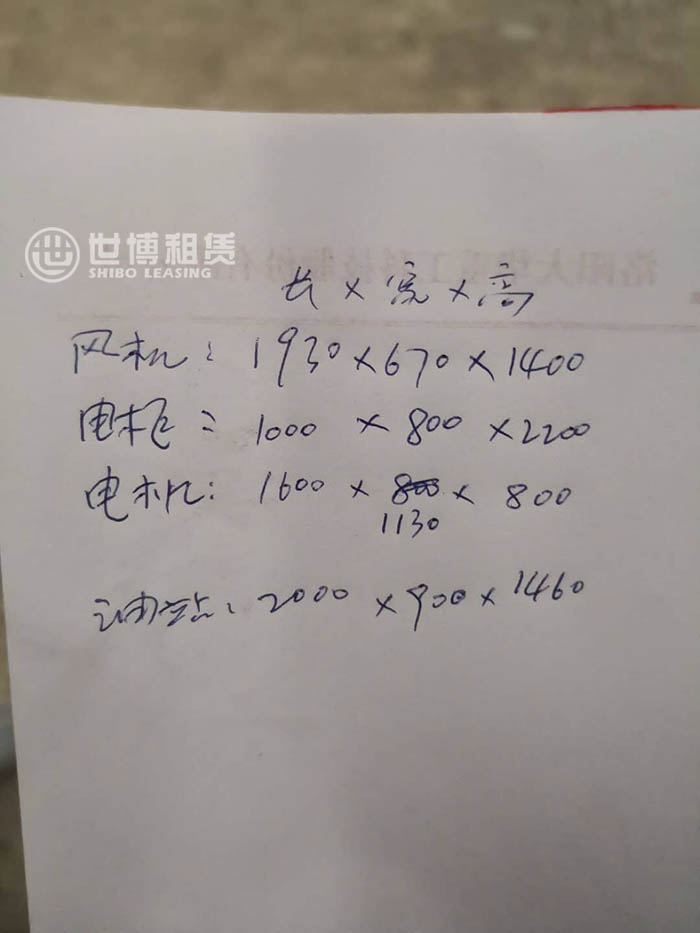 世博租赁
SHIBO LEASING
长×宽×高
风机: 1930×670×1400
电柜: 1000×800×2200
电机: 1600×800×800
1130
油站: 2000×900×1460